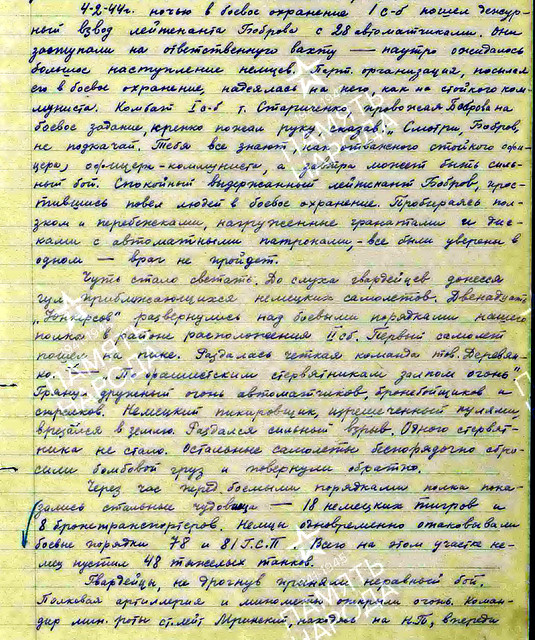 4-2-44г. ночью в боевое охранение 1 с-б пошел дежур-
ный взвод лейтенанта Боброва с 28 автоматчиками. Они
заступали на ответственную вахту — наутро ожидалось
большое наступление немцев. Парт. организация, посылая
его в боевое охранение, надеялась на него, как на стойкого ком-
муниста. Комбат 1 с-б т. Стариченко, провожая Боброва на
боевое задание, крепко пожал руку, сказав: „Смотри, Бобров,
не подкачай. Тебя все знают, как отважного стойкого офи-
цера, офицера-коммуниста, а завтра может быть силь-
ный бой. Спокойный выдержанный лейтенант Бобров, прос-
тившись повел людей в боевое охранение. Пробираясь пол-
зком и перебежками, нагруженные гранатами и дис-
ками с автоматными патронами, - все были уверены в
одном — враг не пройдет.
Чуть стало светать. До слуха гвардейцев донесся
гул приближающихся немецких самолетов. Двенадцать
„Юнкерсов" развернулись над боевыми порядками нашего
полка в районе расположения II сб. Первый самолет
пошел на пике. Раздалась четкая команда тов. Деревян-
ко. „По фашистским стервятникам залпом огонь"
Грянул дружный огонь автоматчиков, бронебойщиков и
стрелков. Немецкий пикировщик, изрешеченный пулями,
врезался в землю. Раздался сильный взрыв. Одного стервят-
ника не стало. Остальные самолеты беспорядочно сбро-
сили бомбовой груз и повернули обратно.
Через час перед боевыми порядками полка пока-
зались стальные чудовища — 18 немецких тигров и
8 бронетранспортеров. Немцы одновременно атаковывали
боевые порядки 78 и 81 Г.С.П. Всего на этом участке не-
мец пустил 48 тяжелых танков.
Гвардейцы, не дрогнув приняли неравный бой.
Полковая артиллерия и минометы открыли огонь. Коман-
дир мин. роты ст. лейт. находясь на НП, впереди
ПАМЯТЬ НАРОДА
1945
ПАМЯТЬ НАРОДА
1945
ПАМЯТЬ НАРОДА